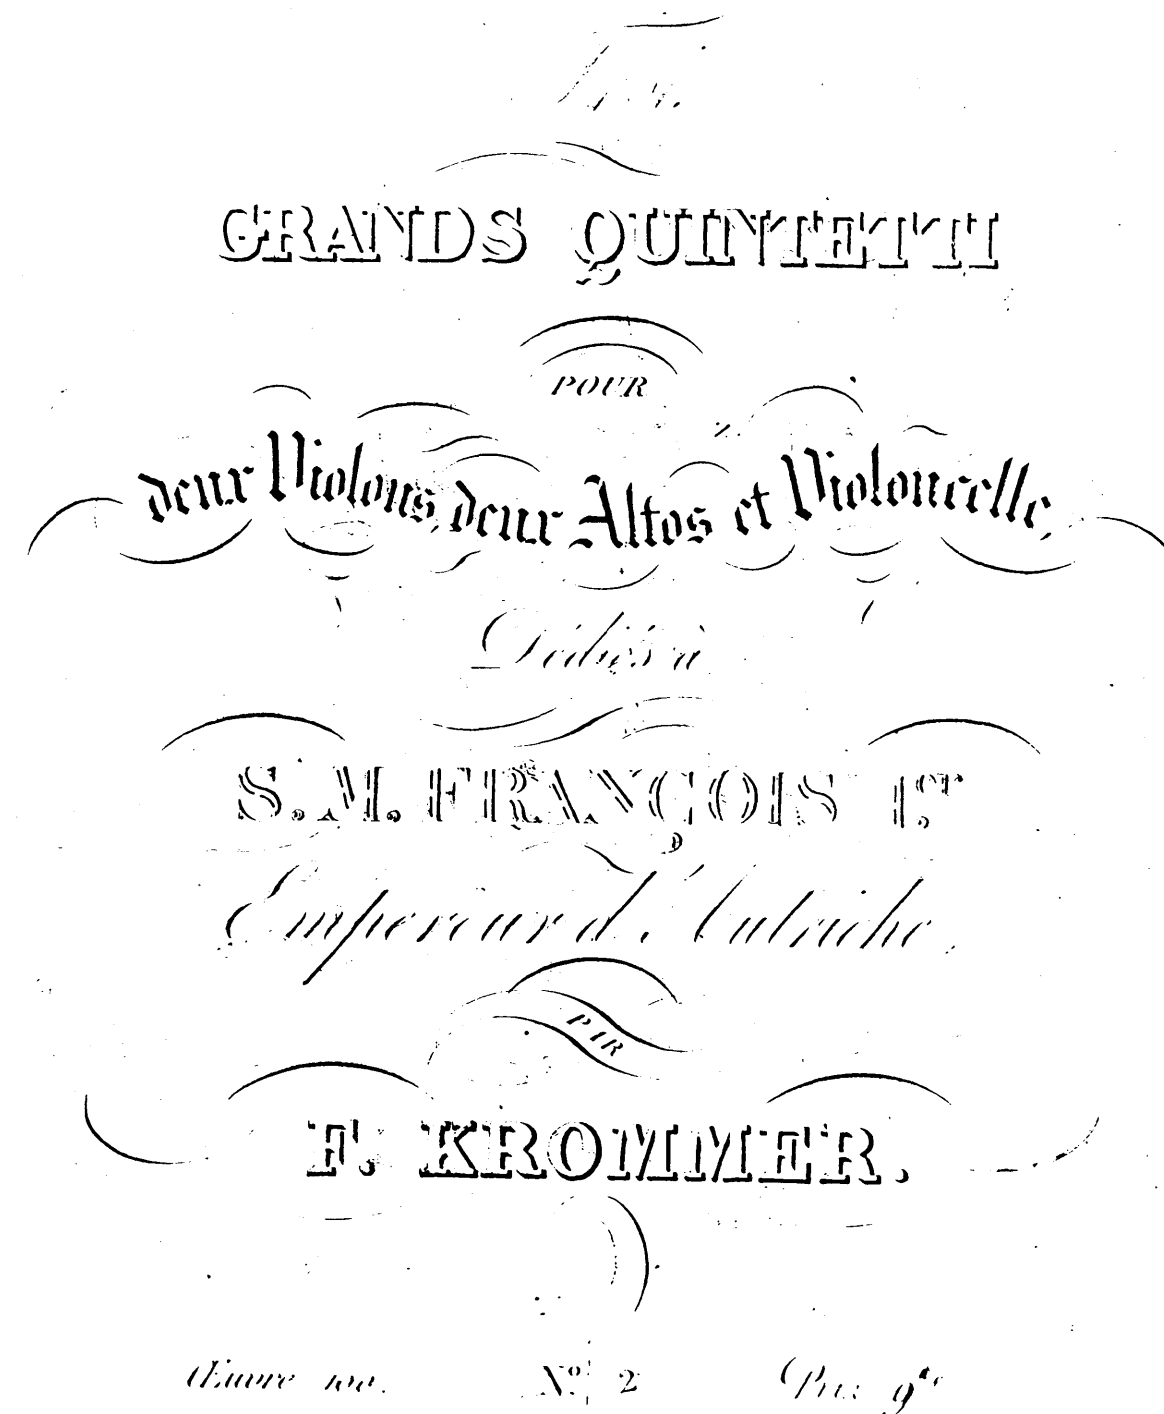 GRANDS QUINTETTI
POUR
deux Violons, deux Altos et Violoncelle,
Dédiés à
S. M. FRANÇOIS 1.er
Empereur d'Autriche.
PAR
F. KROMMER.
Œuvre 100. No. 2 Prix 9